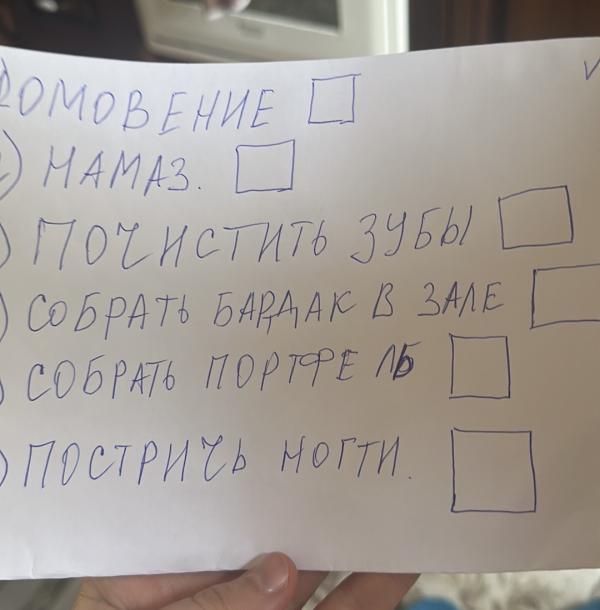 ОМОВЕНИЕ
) НАМАЗ.
) ПОЧИСТИТЬ ЗУБЫ
) СОБРАТЬ БАРДАК В ЗАЛЕ
) СОБРАТЬ ПОРТФЕЛЬ
) ПОСТРИЧЬ НОГТИ.